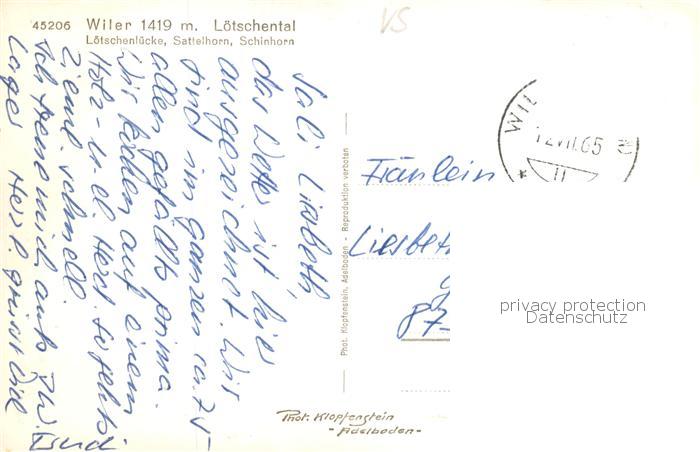 45206 Wiler 1419 m. Lötschental
Lötschenlücke, Sattelhorn, Schinhorn
VS
Sali Liesbeth,
das Wetter ist hier
ausgezeichnet. Wir
sind im ganzen ca. 24
allen gefällts prima.
Wir kochen auf einem
Holz- u. el. Herd. So gehts
ziemli. schnell.
Ich freue mich aufs
Lager Herzl. grüsst Dich
Phot. Klopfenstein, Adelboden - Reproduktion verboten
WIL
12.VII.65
Fräulein
Liesbeth
87-
privacy protection
Datenschutz
Phot. Klopfenstein
- Adelboden -